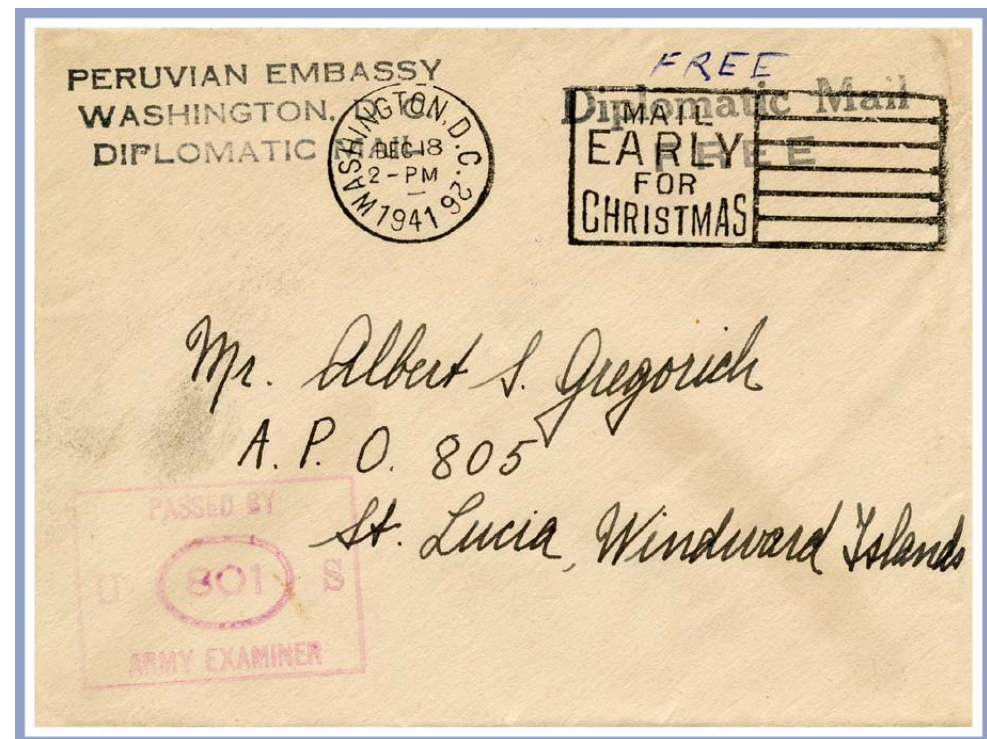 PERUVIAN EMBASSY
WASHINGTON, D.C.
DIPLOMATIC MAIL
WASHINGTON, D.C. 26
DEC 18
2-PM
1941
FREE
Diplomatic Mail
FREE
MAIL
EARLY
FOR
CHRISTMAS
Mr. Albert S. Gregorich
A. P. O. 805
St. Lucia, Windward Islands
PASSED BY
U 801 S
ARMY EXAMINER